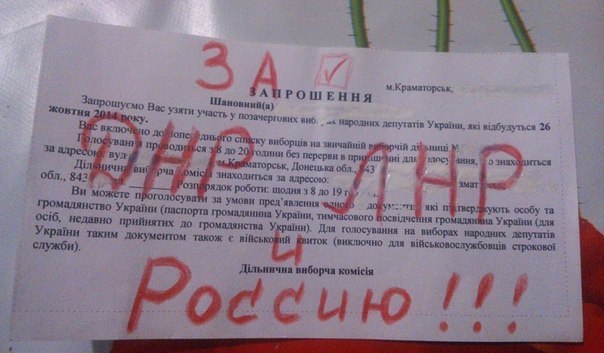 ЗА
м.Краматорськ,
ЗАПРОШЕННЯ
Шановний(а)
Запрошуємо Вас узяти участь у позачергових народних депутатів України, які відбудуться 26
жовтня 2014 року.
Вас включено до попереднього списку виборців на звичайній виборчій дільниці
Голосування проводиться з 8 до 20 години без перерви в приміщенні для знаходиться
за адресою: вул Краматорськ, Донецька обл.,
Дільнична виборча комісія знаходиться за адресою:
обл., 843 Розпорядок роботи: щодня з 8 до 19
Ви можете проголосувати за умови пред'явлення які підтверджують особу та
громадянство України (паспорта громадянина України, тимчасового посвідчення громадянина України (для
осіб, недавно прийнятих до громадянства України). Для голосування на виборах народних депутатів
України таким документом також є військовий квиток (виключно для військовослужбовців строкової
служби).
Дільнична виборча комісія
ДНР ЛНР
и
Россию!!!